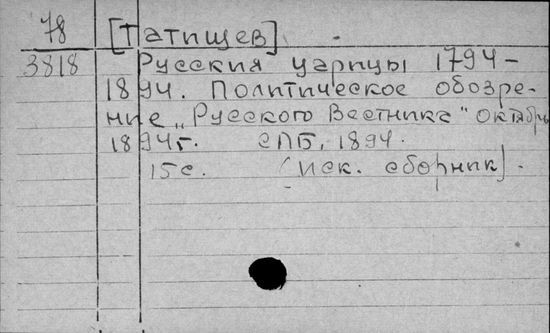 78 [Татищев]
3818 Русския царицы 1794-
1894. Политическое обозре-
ние „Русского Вестника" Октябрь
1894г. СПБ, 1894.
15с. (Иск. сборник).